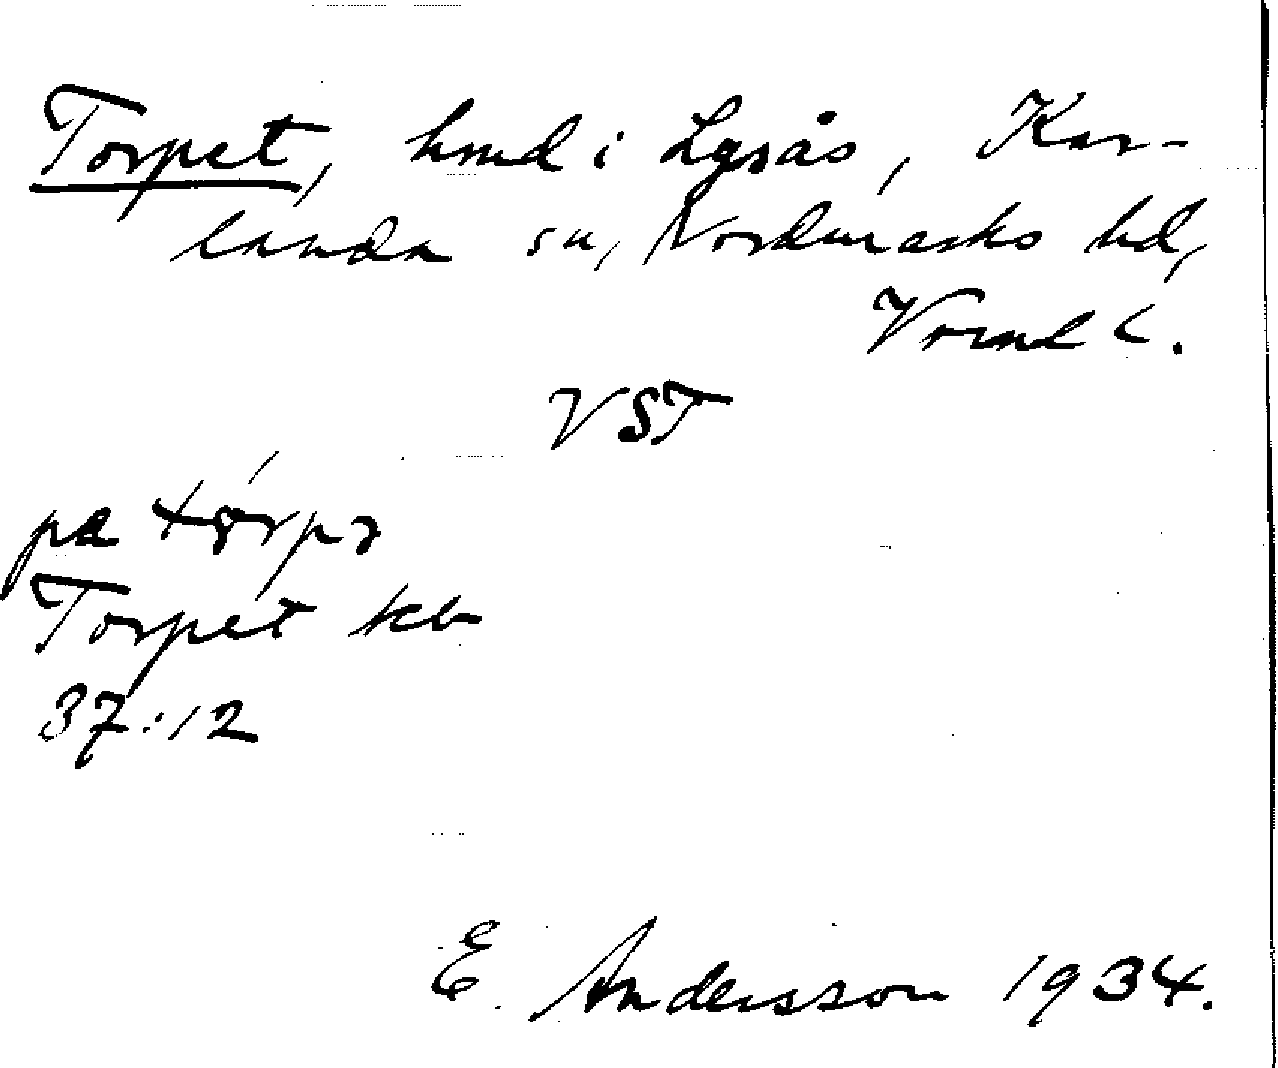 Torpet, hmd i Lysås, Kar-
landa sn, Nordmarks hd,
Vrml l.
VST
pa
Torpet kb
37:12
E. Andersson 1934.